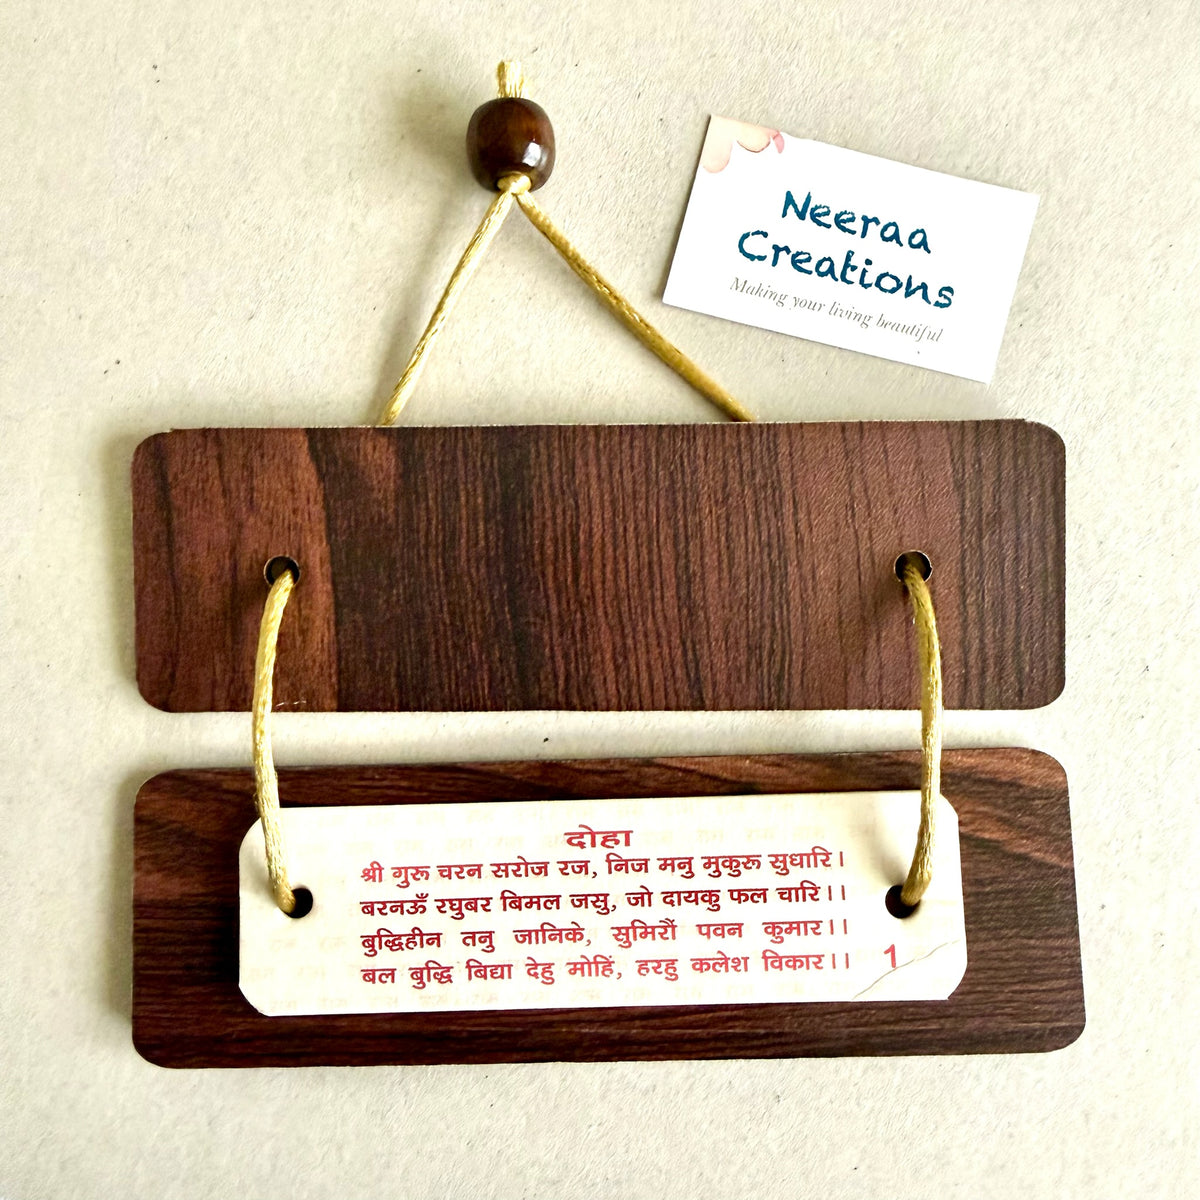 Neeraa
Creations
Making your living beautiful
दोहा
श्री गुरू चरन सरोज रज, निज मनु मुकुरू सुधारि।
बरनऊँ रघुबर बिमल जसु, जो दायकु फल चारि।।
बुद्धिहीन तनु जानिके, सुमिरौं पवन कुमार।।
बल बुद्धि बिद्या देहु मोहिं, हरहु कलेश विकार।।
1